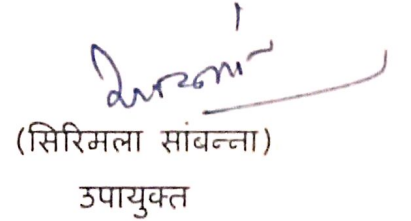 (सिरिमला सांबन्ना)
उपायुक्त